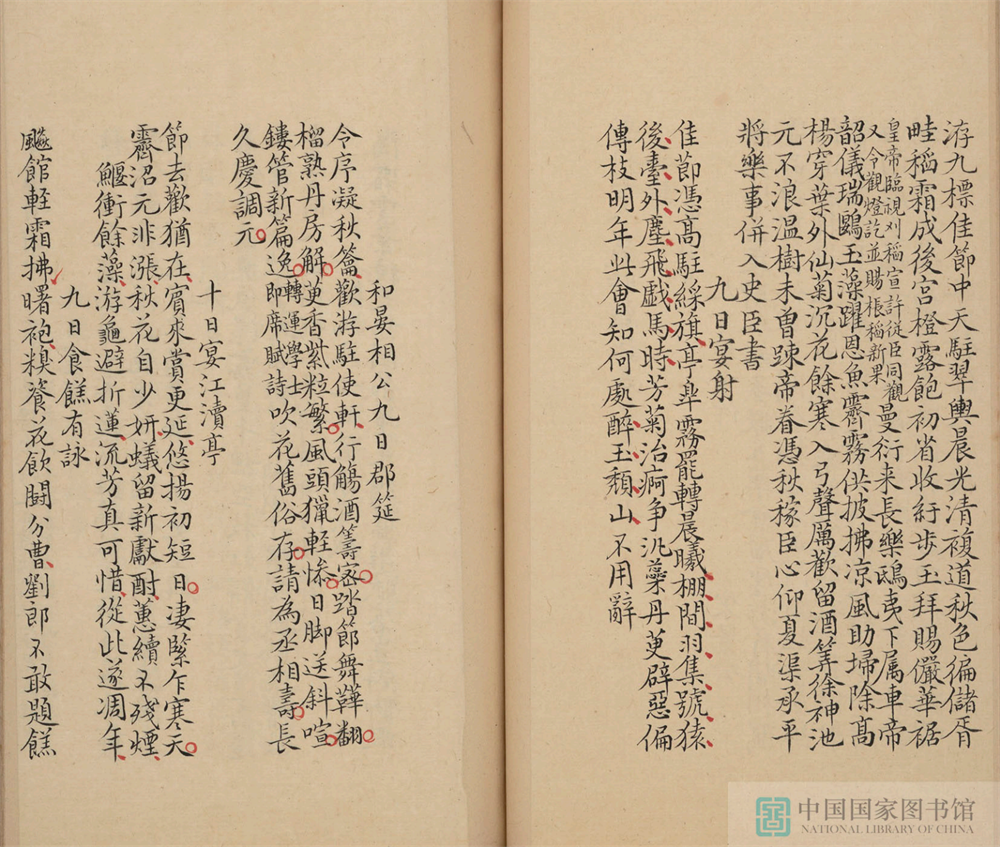 洊九標佳節中天駐翠輿晨光清複道秋色徧儲胥
畦稻霜成後宮橙露飽初省收紆步玉拜賜儼華裾
皇帝臨視刈稻宣許從臣同觀
又令觀燈訖並賜棖稻新果
曼衍来長樂鴟夷下属車帝
韶儀瑞鷗玉藻躍恩魚霽霧供披拂凉風助埽除高
楊穿葉外仙菊沉花餘寒入弓聲厲歡留酒筭徐神池
元不浪溫樹未曾踈帝眷憑秋稼臣心仰夏渠承平
將樂事併入史臣書
九日宴射
佳節憑高駐綵旗亭臯霧罷轉晨曦棚間羽集號猿
後臺外塵飛戯馬時芳菊治痾争汎蘂丹萸辟惡偏
傳枝明年此會知何處醉玉頹山不用辭
和晏相公九日郡筵
令序凝秋籥歡游駐使軒行觴酒籌密踏節舞鞾翻
榴熟丹房解萸香紫粒繁風頭獵輕幓日脚送斜暄
鏤管新篇逸
轉運學士
即席賦詩
吹花舊俗存請為丞相壽長
久慶調元
十日宴江瀆亭
節去歡猶在賓來賞更延悠揚初短日凄緊乍寒天
霽沼元非漲秋花自少妍蟻留新獻酎蕙續不殘煙
鰋衝餘藻游龜避折蓮流芳真可惜從此遂凋年
九日食餻有詠
飈館輕霜拂曙袍糗餈花飲鬪分曹劉郎不敢題餻
中国国家图书馆
NATIONAL LIBRARY OF CHINA